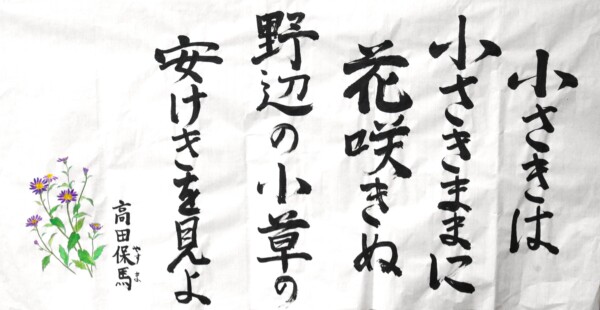 小さきは
小さきままに
花咲きぬ
野辺の小草の
安けきを見よ
高田保馬
やすま